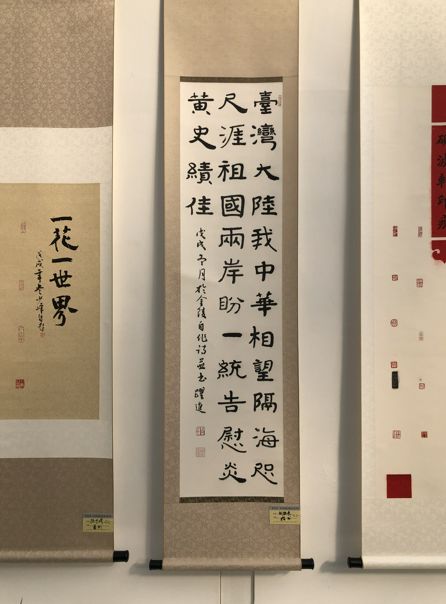 臺灣大陸我中華相望隔海咫
尺涯祖國兩岸盼一統告慰炎
黄史績佳
戊戌月於金陵自作詩並書躍進
一花一世界
戊戌年